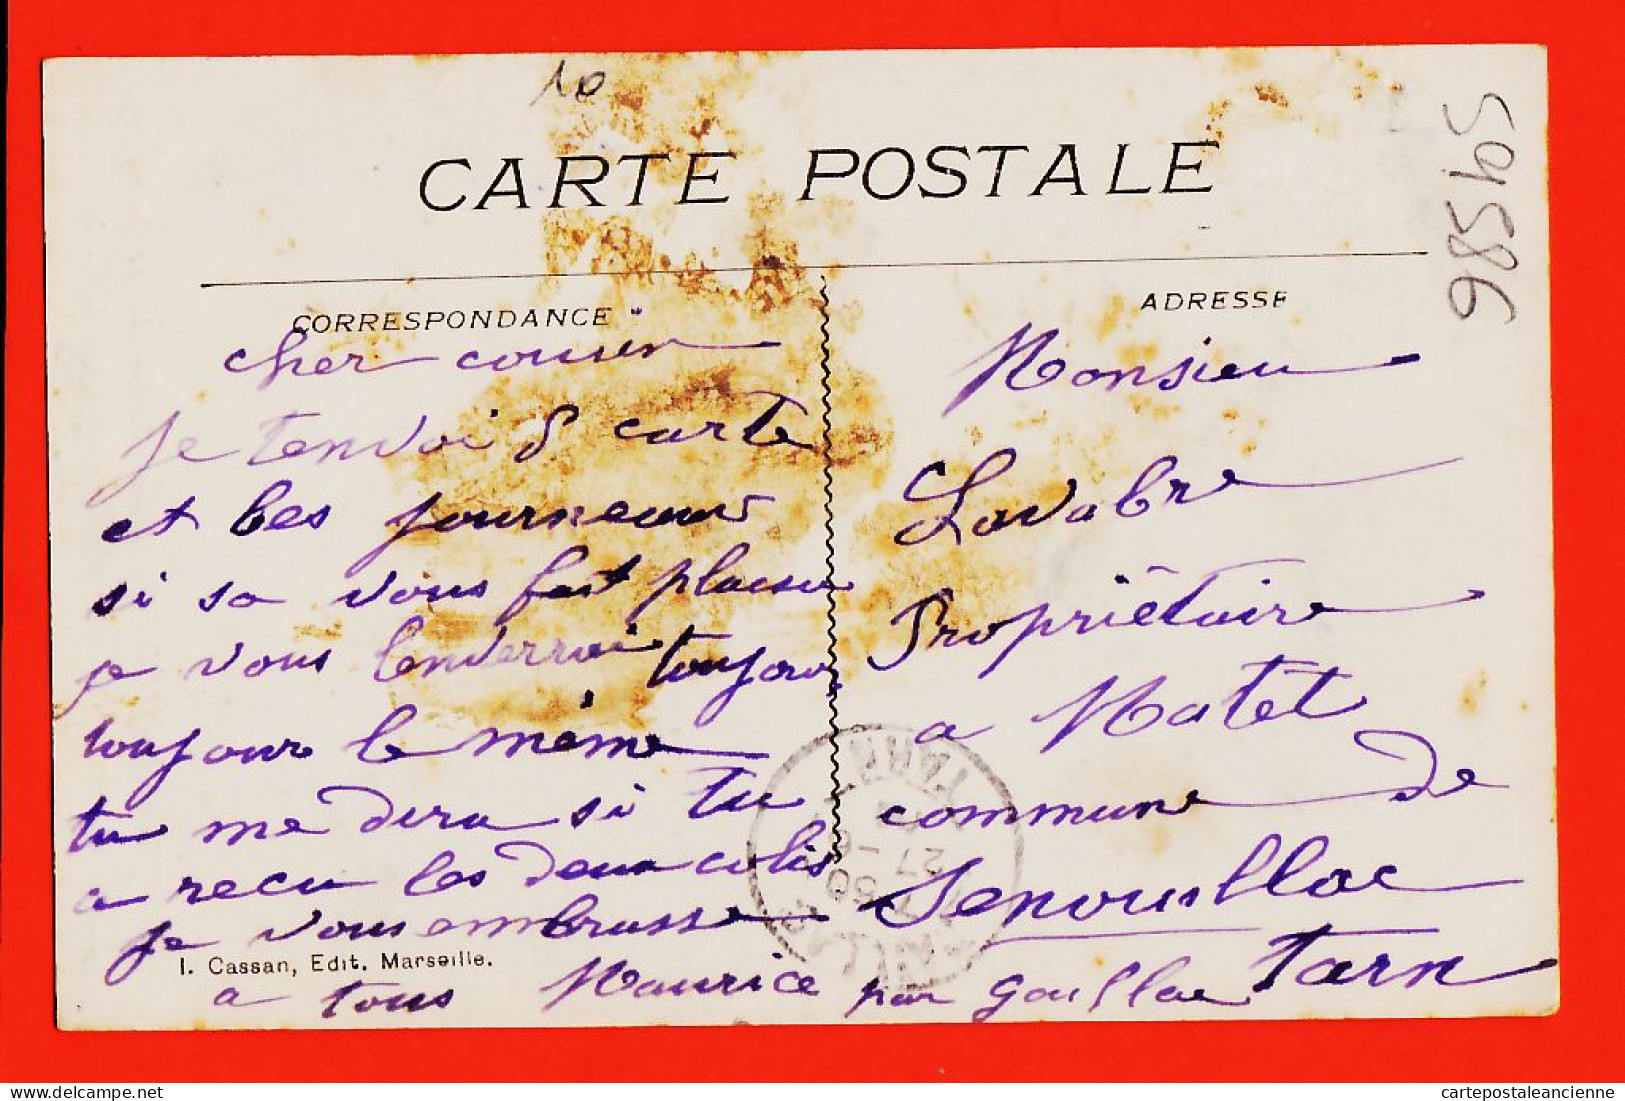 10
CARTE POSTALE
CORRESPONDANCE
ADRESSE
cher cousin
Je tenvoi 8 carte
et les journeaux
si sa vous fait plaisir
je vous lenverrai toujour
toujour le même
tu me dira si tu
a recu les deux colis
je vous embrasse
a tous Maurice
Monsieu
Lavabre
Propriêtaire
a Matet
commune de
Senouillac
par Gaillac Tarn
I. Cassan, Edit. Marseille.
27 -6
TARN
504586
Delcampe.net
cartepostaleancienne